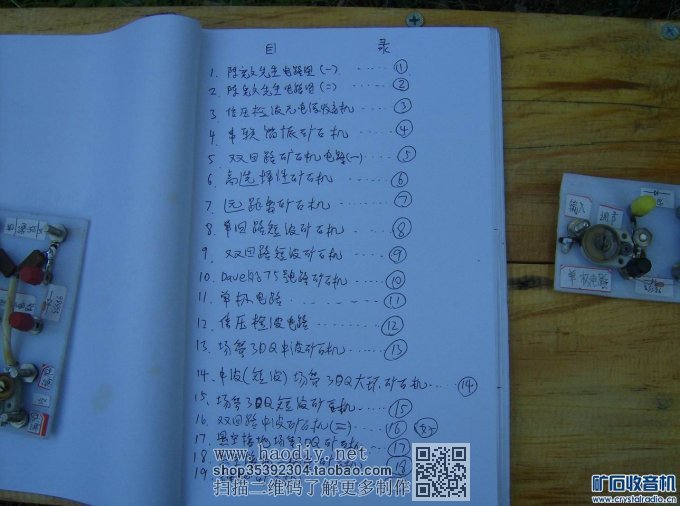 目 录
1. 陈家文先生电路图(一)······①
2. 陈家文先生电路图(二)······②
3 倍压检波无电源收音机····③
4 串联谐振矿石机·····④
5 双回路矿石机电路(一)···⑤
6 高选择性矿石机·····⑥
7 远距离矿石机·····⑦
8 单回路短波矿石机····⑧
9. 双回路短波矿石机····⑨
10. Dave的75号路矿石机···⑩
11. 单极电路······⑪
12. 倍压检波电路······⑫
13. 场管3DQ中波矿石机···⑬
14. 中波(短波)场管3DQ大环矿石机···⑭
15. 场管3DQ短波矿石机···⑮
16. 双回路中波矿石机(二)···⑯
17. 悬空接地场管3DQ矿石机···⑰
18 ⑱
19
www.haodiy.net
shop35392304.taobao.com
扫描二维码了解更多制作
输入
调音
单极电路
矿石收音机
www.crystalradio.cn